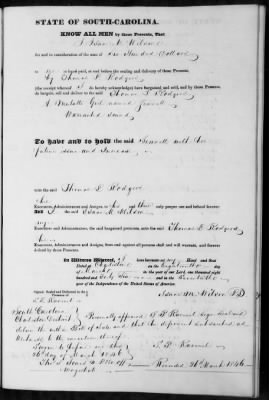 STATE OF SOUTH-CAROLINA.
KNOW ALL MEN by these Presents, That
I Isaac M Wilson
for and in consideration of the sum of Six Hundred Dollars
to me in hand paid, at and before the sealing and delivery of these Presents,
by Thomas L Rodgers
(the receipt whereof I do hereby acknowledge) have bargained and sold, and by these Presents
do bargain, sell and deliver to the said Thomas L Rodgers
A Mulatto Girl named
Warranted sound
To have and to hold the said with her
future issue and increase
unto the said Thomas L Rodgers
his
Executors, Administrators and Assigns, to his and their only proper use and behoof forever.
And I the said Isaac M Wilson
my
Executors, Administrators, and the bargained premises, unto the said Thomas L Rodgers
his
Executors, Administrators and Assigns, from and against all persons shall and will warrant, and forever
defend by these Presents.
In Witness Whereof, I have hereunto set my Hand and Seal
Dated at Charleston on the day
of March in the year of our Lord, one thousand eight
hundred and forty Six and in the
year of the Independence of the United States of America.
Signed, Sealed and Delivered in the
Presence of
Isaac M Wilson M.D.
South Carolina
Charleston District
Personally appeared
deliver the within Bill of Sale and that the deponent subscribed as
Witness to the execution thereof
Sworn to before me this
26th day of March 1846
Magistrate
Recorded 26th March 1846